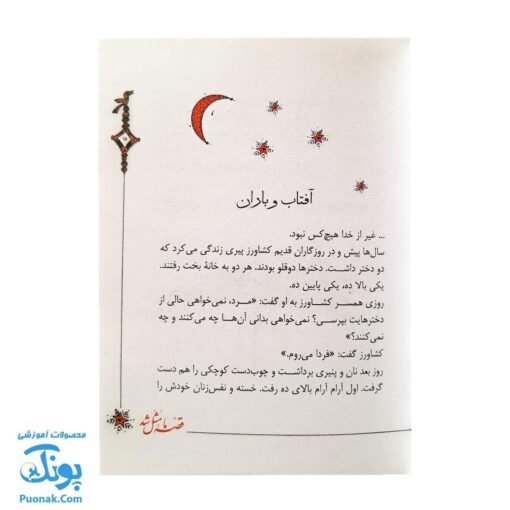 آفتاب و باران
... غیر از خدا هیچ‌کس نبود.
سال‌ها پیش و در روزگاران قدیم کشاورز پیری زندگی می‌کرد که
دو دختر داشت. دخترها دوقلو بودند. هر دو به خانهٔ بخت رفتند.
یکی بالا ده، یکی پایین ده.
روزی همسر کشاورز به او گفت: «مرد، نمی‌خواهی حالی از
دخترهایت بپرسی؟ نمی‌خواهی بدانی آن‌ها چه می‌کنند و چه
نمی‌کنند؟»
کشاورز گفت: «فردا می‌روم.»
روز بعد نان و پنیری برداشت و چوب‌دست کوچکی را هم دست
گرفت. اول آرام آرام بالای ده رفت. خسته و نفس‌زنان خودش را
قصه ما مثل شد
محصولات آموزشی
پونک
Puonak.Com